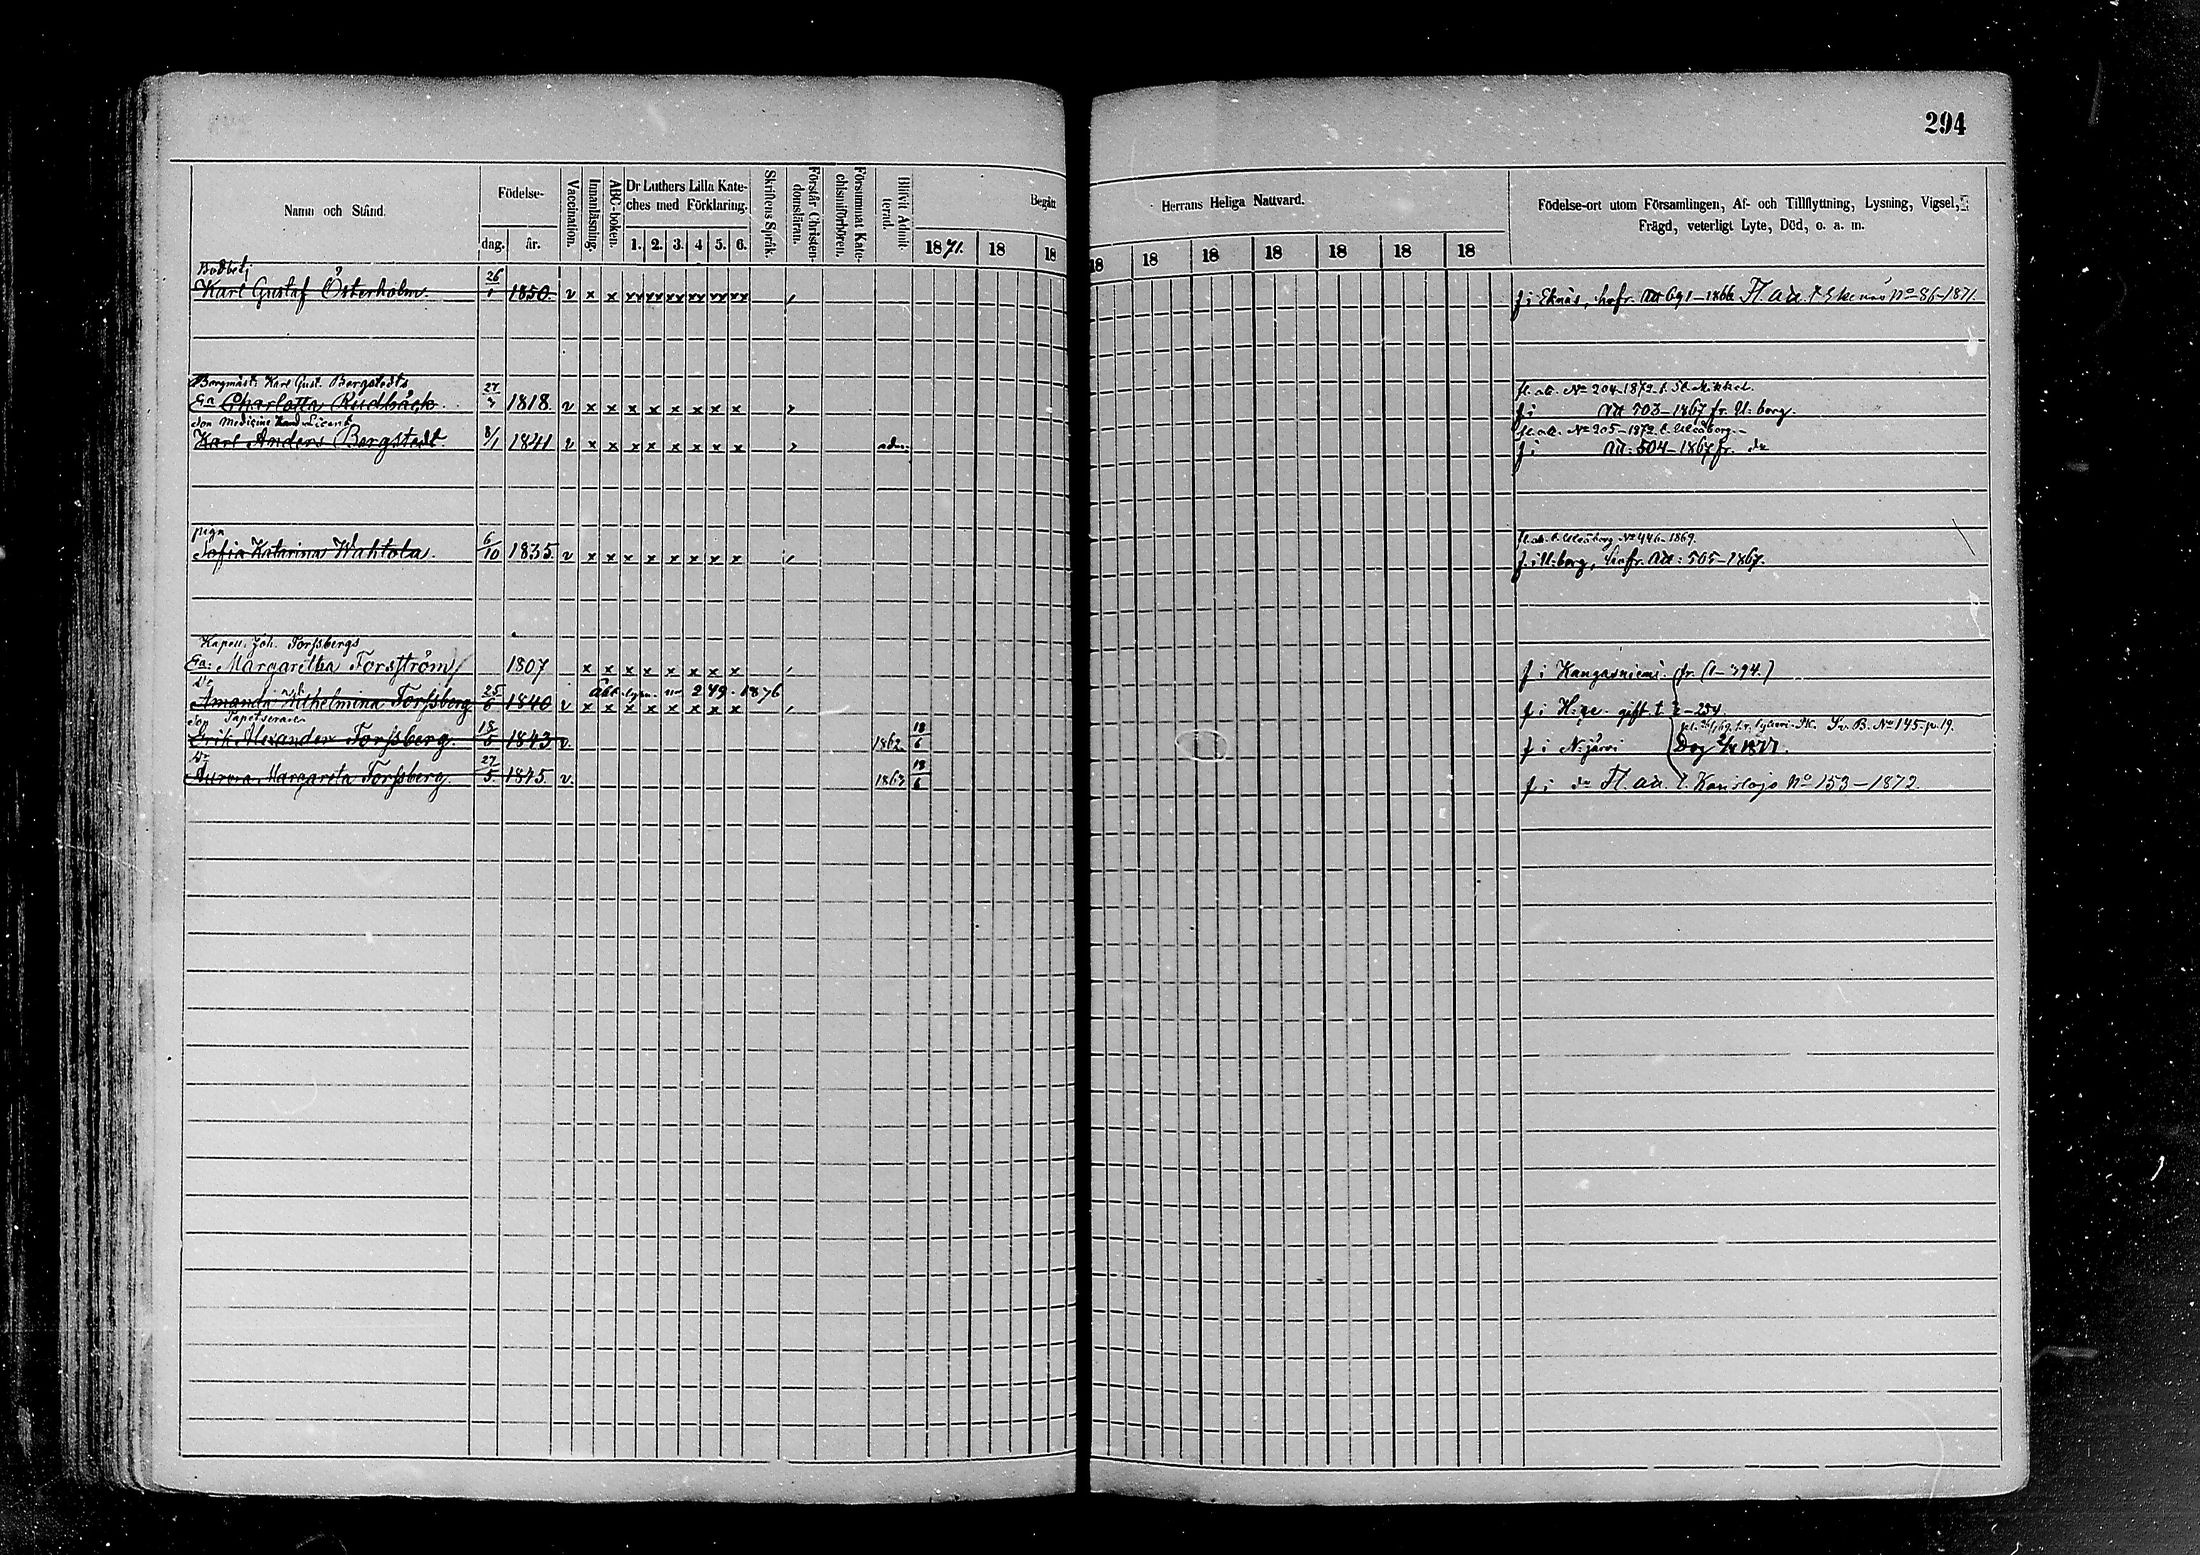 294
Namn och Stånd.
Födelse-
dag.
år.
Vaccination.
Innanläsning.
ABC-boken.
Dr Luthers Lilla Kate-
ches med Förklaring.
1. 2. 3. 4 5. 6.
Skriftens Språk.
Förstår Christen-
domsläran.
Försummat Kate-
chismiförhören.
Blifvit Admit-
terad.
Begått
Herrans Heliga Nattvard.
1871. 18 18 18 18 18 18 18 18 18
Födelse-ort utom Församlingen, Af- och Tillflyttning, Lysning, Vigsel,
Frägd, veterligt Lyte, Död, o. a. m.
Bodbetj
Karl Gustaf Österholm. 26/1 1850. v x x xx xx xx xx xx xx f i Eknäs, hrfr. att 691-1866 Fl. att. t Ekenäs No 86-1871.
Bergmäst. Karl Gust. Bergstedts fl. att. No 204-1872 t. St. Mikkel.
Ea Charlotta Rudbäck. 27/7 1818. v x x x x x x x x f i att 503-1867 fr. U-borg.
Son Medicine Kand Licent fl. att. No 205-1872 t. Uleåborg.
Karl Anders Bergstedt. 8/1 1841 v x x x x x x x x adm. f i att: 504-1867 fr. do
pigan fl. att. t. Uleåborg No 446-1869.
Sofia Katarina Wahtola. 6/10 1835. v x x x x x x x x f. i U:borg, hrfr. att: 505-1867.
Kapell. Joh. Forssbergs
Ea: Margaretha Forsström 1807 x x x x x x x x f i Kangasniemi. fr. (1-394.)
Dr att. lysn. no 249-1876
Amanda Wilhelmina Forssberg 25/6 1840 v x x x x x x x x f i H:ge. gift. t 2-254.
Son Tapetserare
Erik Alexander Forssberg. 13/6 1843 v. 1862. 18/6 f i N:järvi Dog 1877.
Sv. B. No 145. p. 19.
Dr
Aurora Margareta Forssberg. 27/5. 1845 v. 1863 18/6 f i do Fl. att. t. Karislojo No 153-1872.